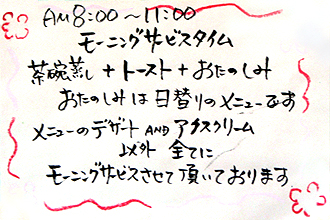 AM 8:00~11:00
モーニングサービスタイム
茶碗蒸し + トースト + おたのしみ
おたのしみは日替りのメニューです
メニューのデザート AND アイスクリーム
以外 全てに
モーニングサービスさせて頂いております